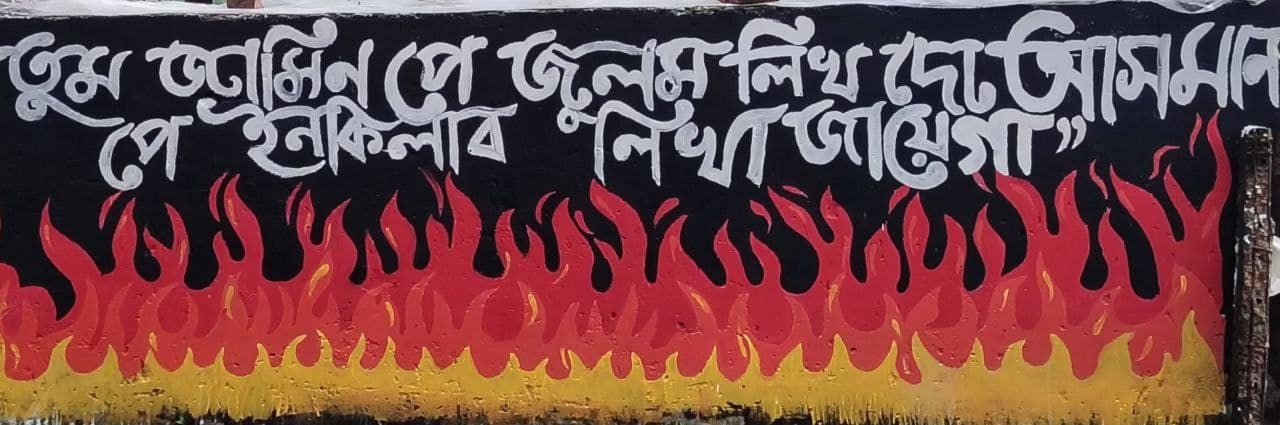 তুম জামিন পে জুলম লিখ দো আসমান
পে ইনকিলাব লিখা জায়েগা”